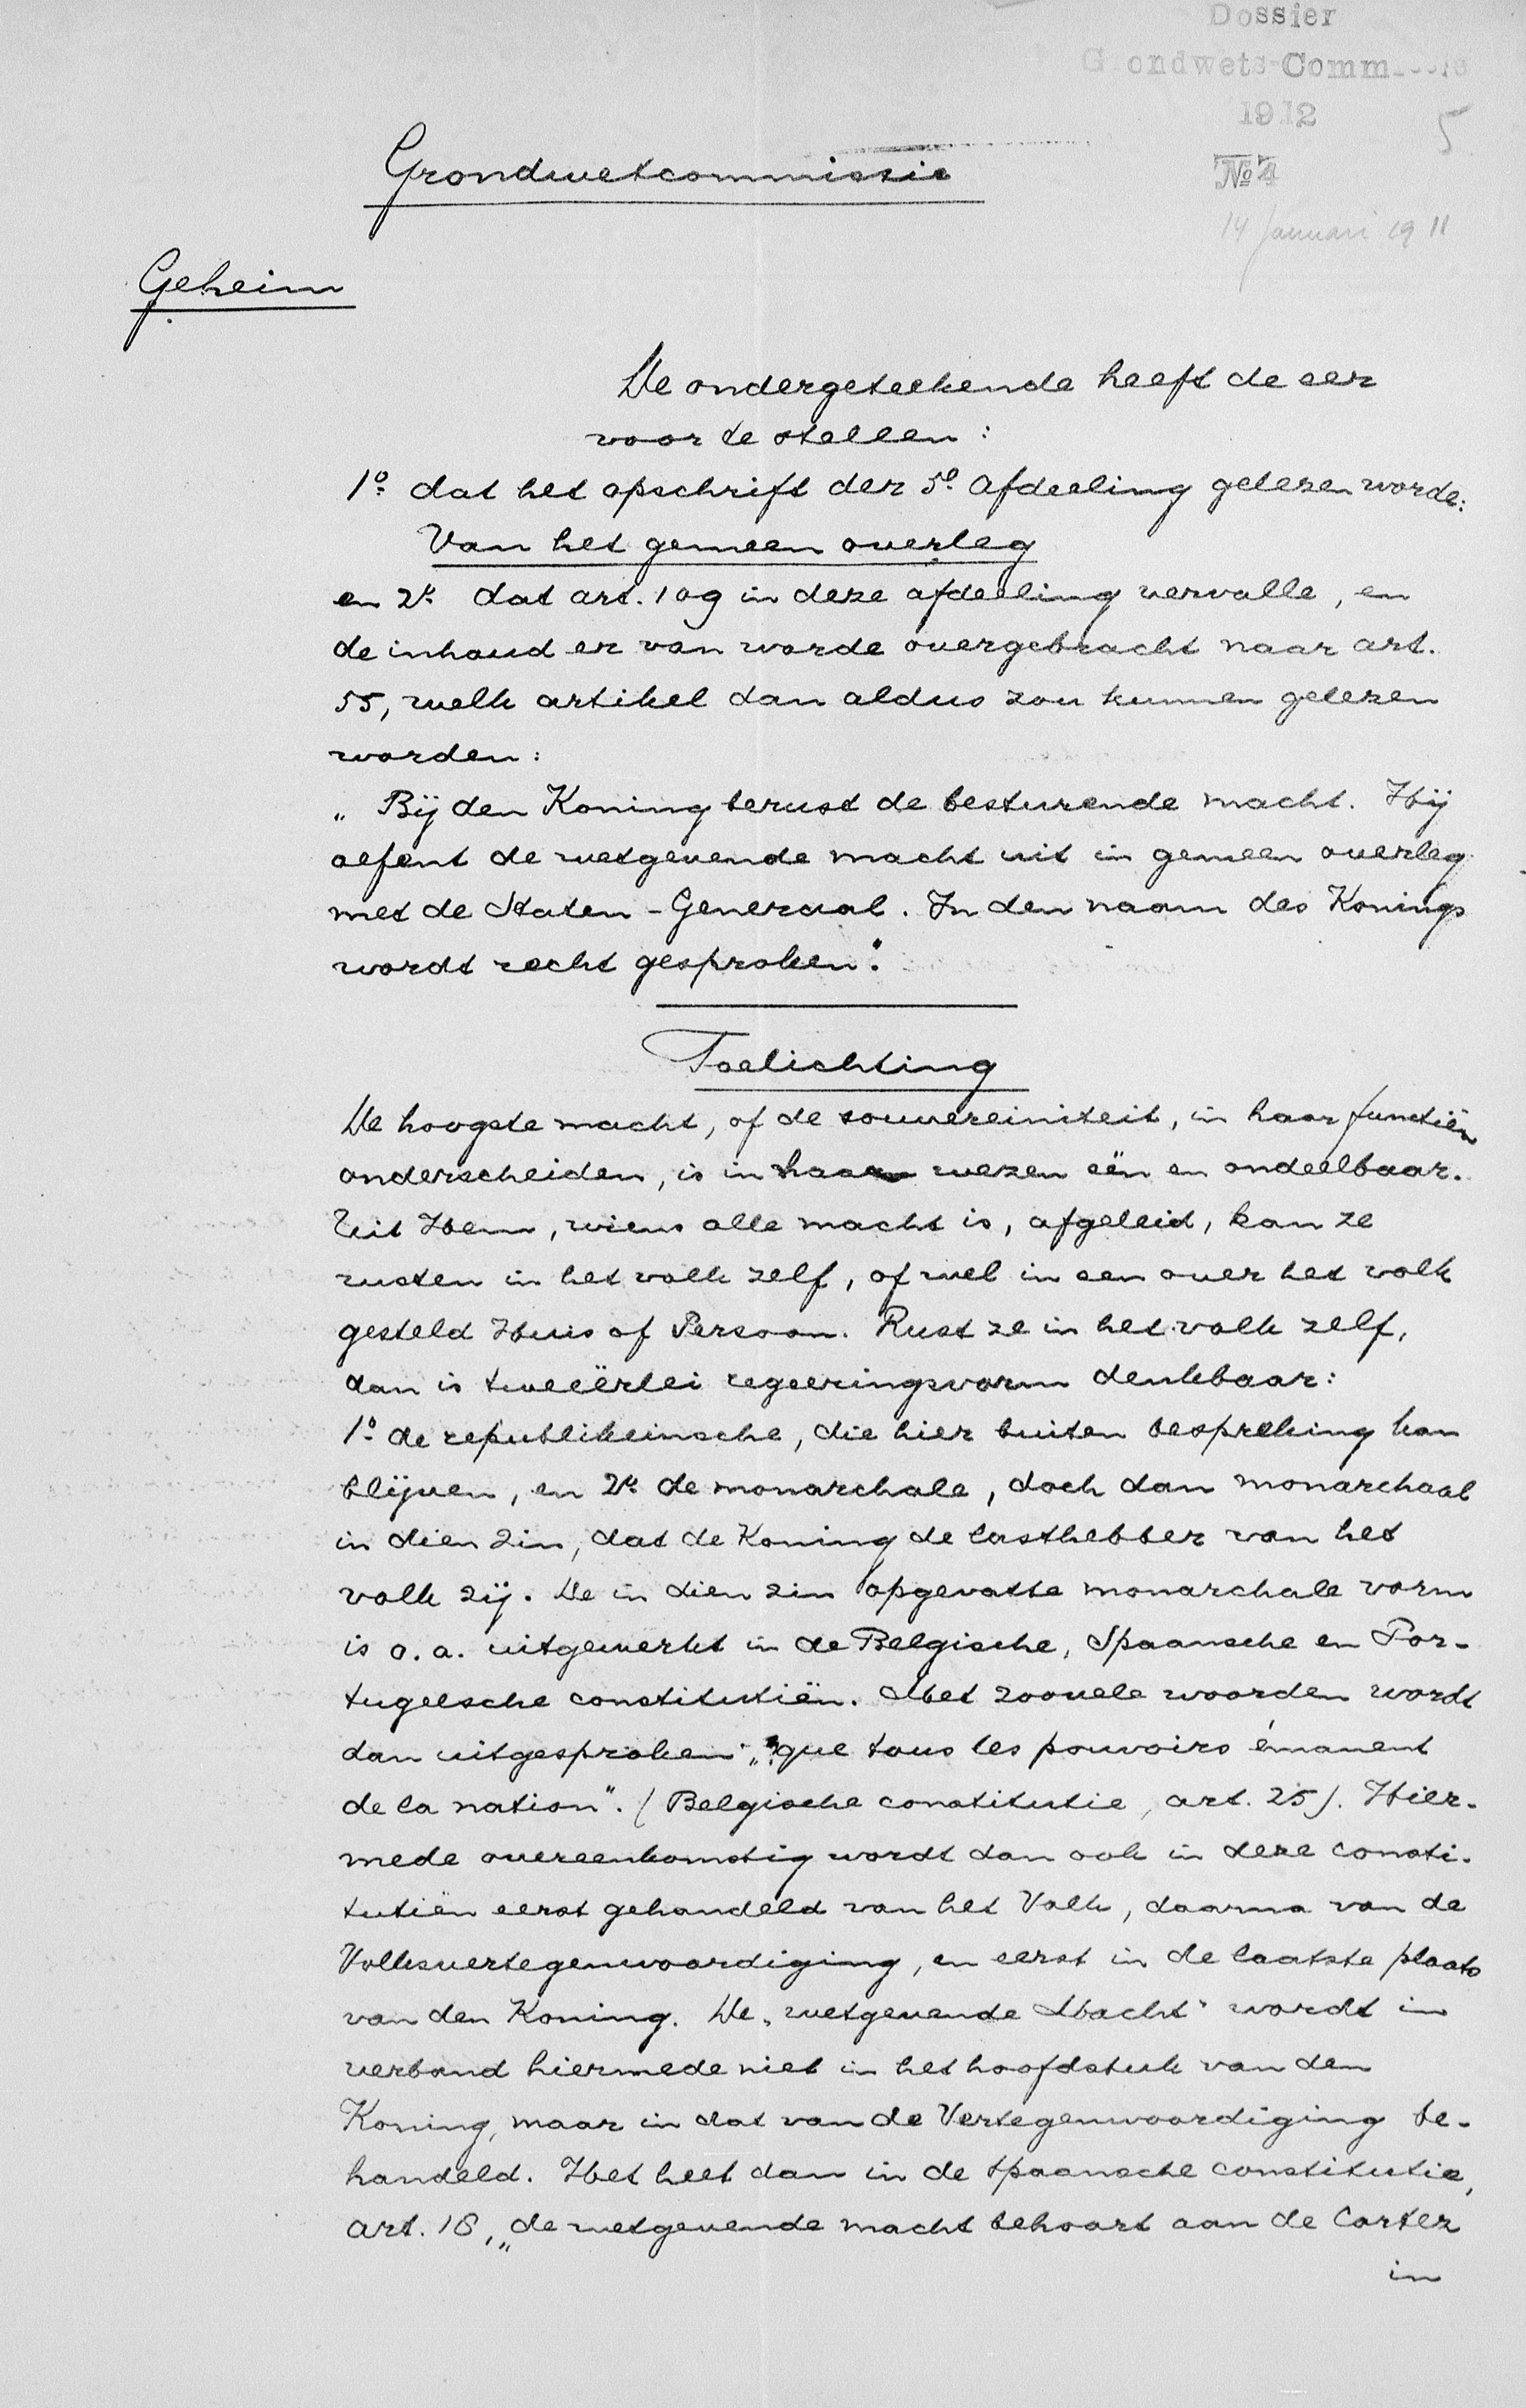 Dossier
Grondwets-Commissie
1912
5
No 4
14 Januari 1911
Grondwetcommissie
Geheim
De ondergeteekende heeft de eer
voor te stellen:
1o. dat het opschrift der 5e. Afdeeling gelezen worde:
Van het gemeen overleg
en 2o. dat art. 109 in deze afdeeling vervalle, en
de inhoud er van worde overgebracht naar art.
55, welk artikel dan aldus zou kunnen gelezen
worden:
„Bij den Koning berust de besturende macht. Hij
oefent de wetgevende macht uit in gemeen overleg
met de Staten-Generaal. In den naam des Konings
wordt recht gesproken."
Toelichting
De hoogste macht, of de souvereiniteit, in haar functiën
onderscheiden, is in haar wezen één en ondeelbaar.
Uit Hem, wiens alle macht is, afgeleid, kan ze
rusten in het volk zelf, of wel in een over het volk
gesteld Huis of Persoon. Rust ze in het volk zelf,
dan is tweeërlei regeeringsvorm denkbaar:
1o. de republikeinsche, die hier buiten bespreking kan
blijven, en 2o. de monarchale, doch dan monarchaal
in dien zin, dat de Koning de lasthebber van het
volk zij. De in dien zin opgevatte monarchale vorm
is o.a. uitgewerkt in de Belgische, Spaansche en Por-
tugeesche constitutiën. Met zoovele woorden wordt
dan uitgesproken „que tous les pouvoirs émanent
de la nation". (Belgische constitutie, art. 25). Hier-
mede overeenkomstig wordt dan ook in deze consti-
tutiën eerst gehandeld van het Volk, daarna van de
Volksvertegenwoordiging, en eerst in de laatste plaats
van den Koning. De „wetgevende Macht" wordt in
verband hiermede niet in het hoofdstuk van den
Koning, maar in dat van de Vertegenwoordiging be-
handeld. Het heet dan in de Spaansche constitutie,
art. 18, „de wetgevende macht behoort aan de Cortez
in